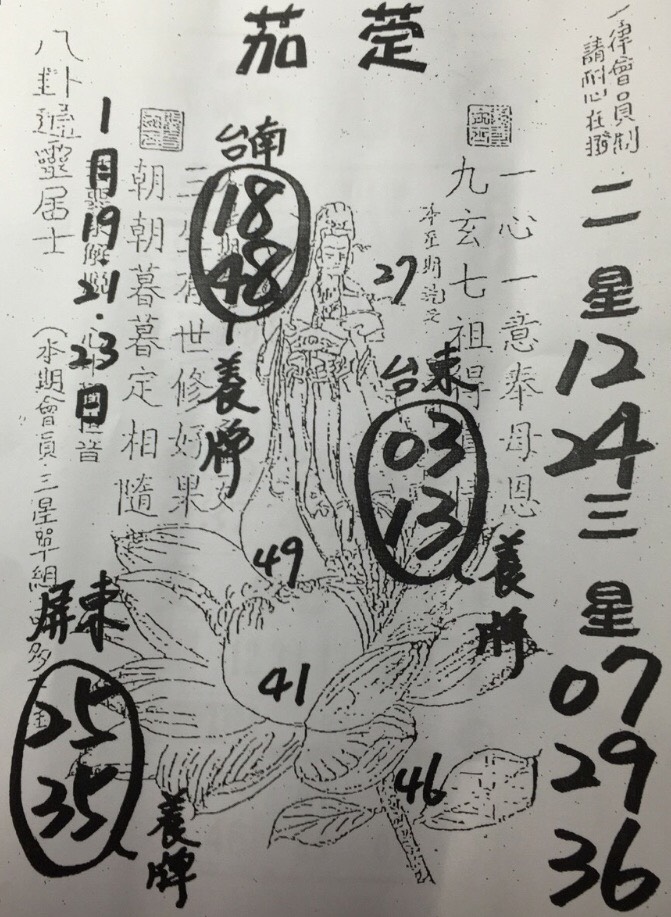 茄萣
一律會員制
請耐心在撥
二星
12
24
三星
07
29
36
一心一意奉母恩
九玄七祖得
27
台東
03
13
養牌
台南
18
48
養牌
三
有世修好果
朝朝暮暮定相隨
1月19.21.23日
八卦
居士
(本期會員.三星單組
屏東
25
35
養牌
49
41
46